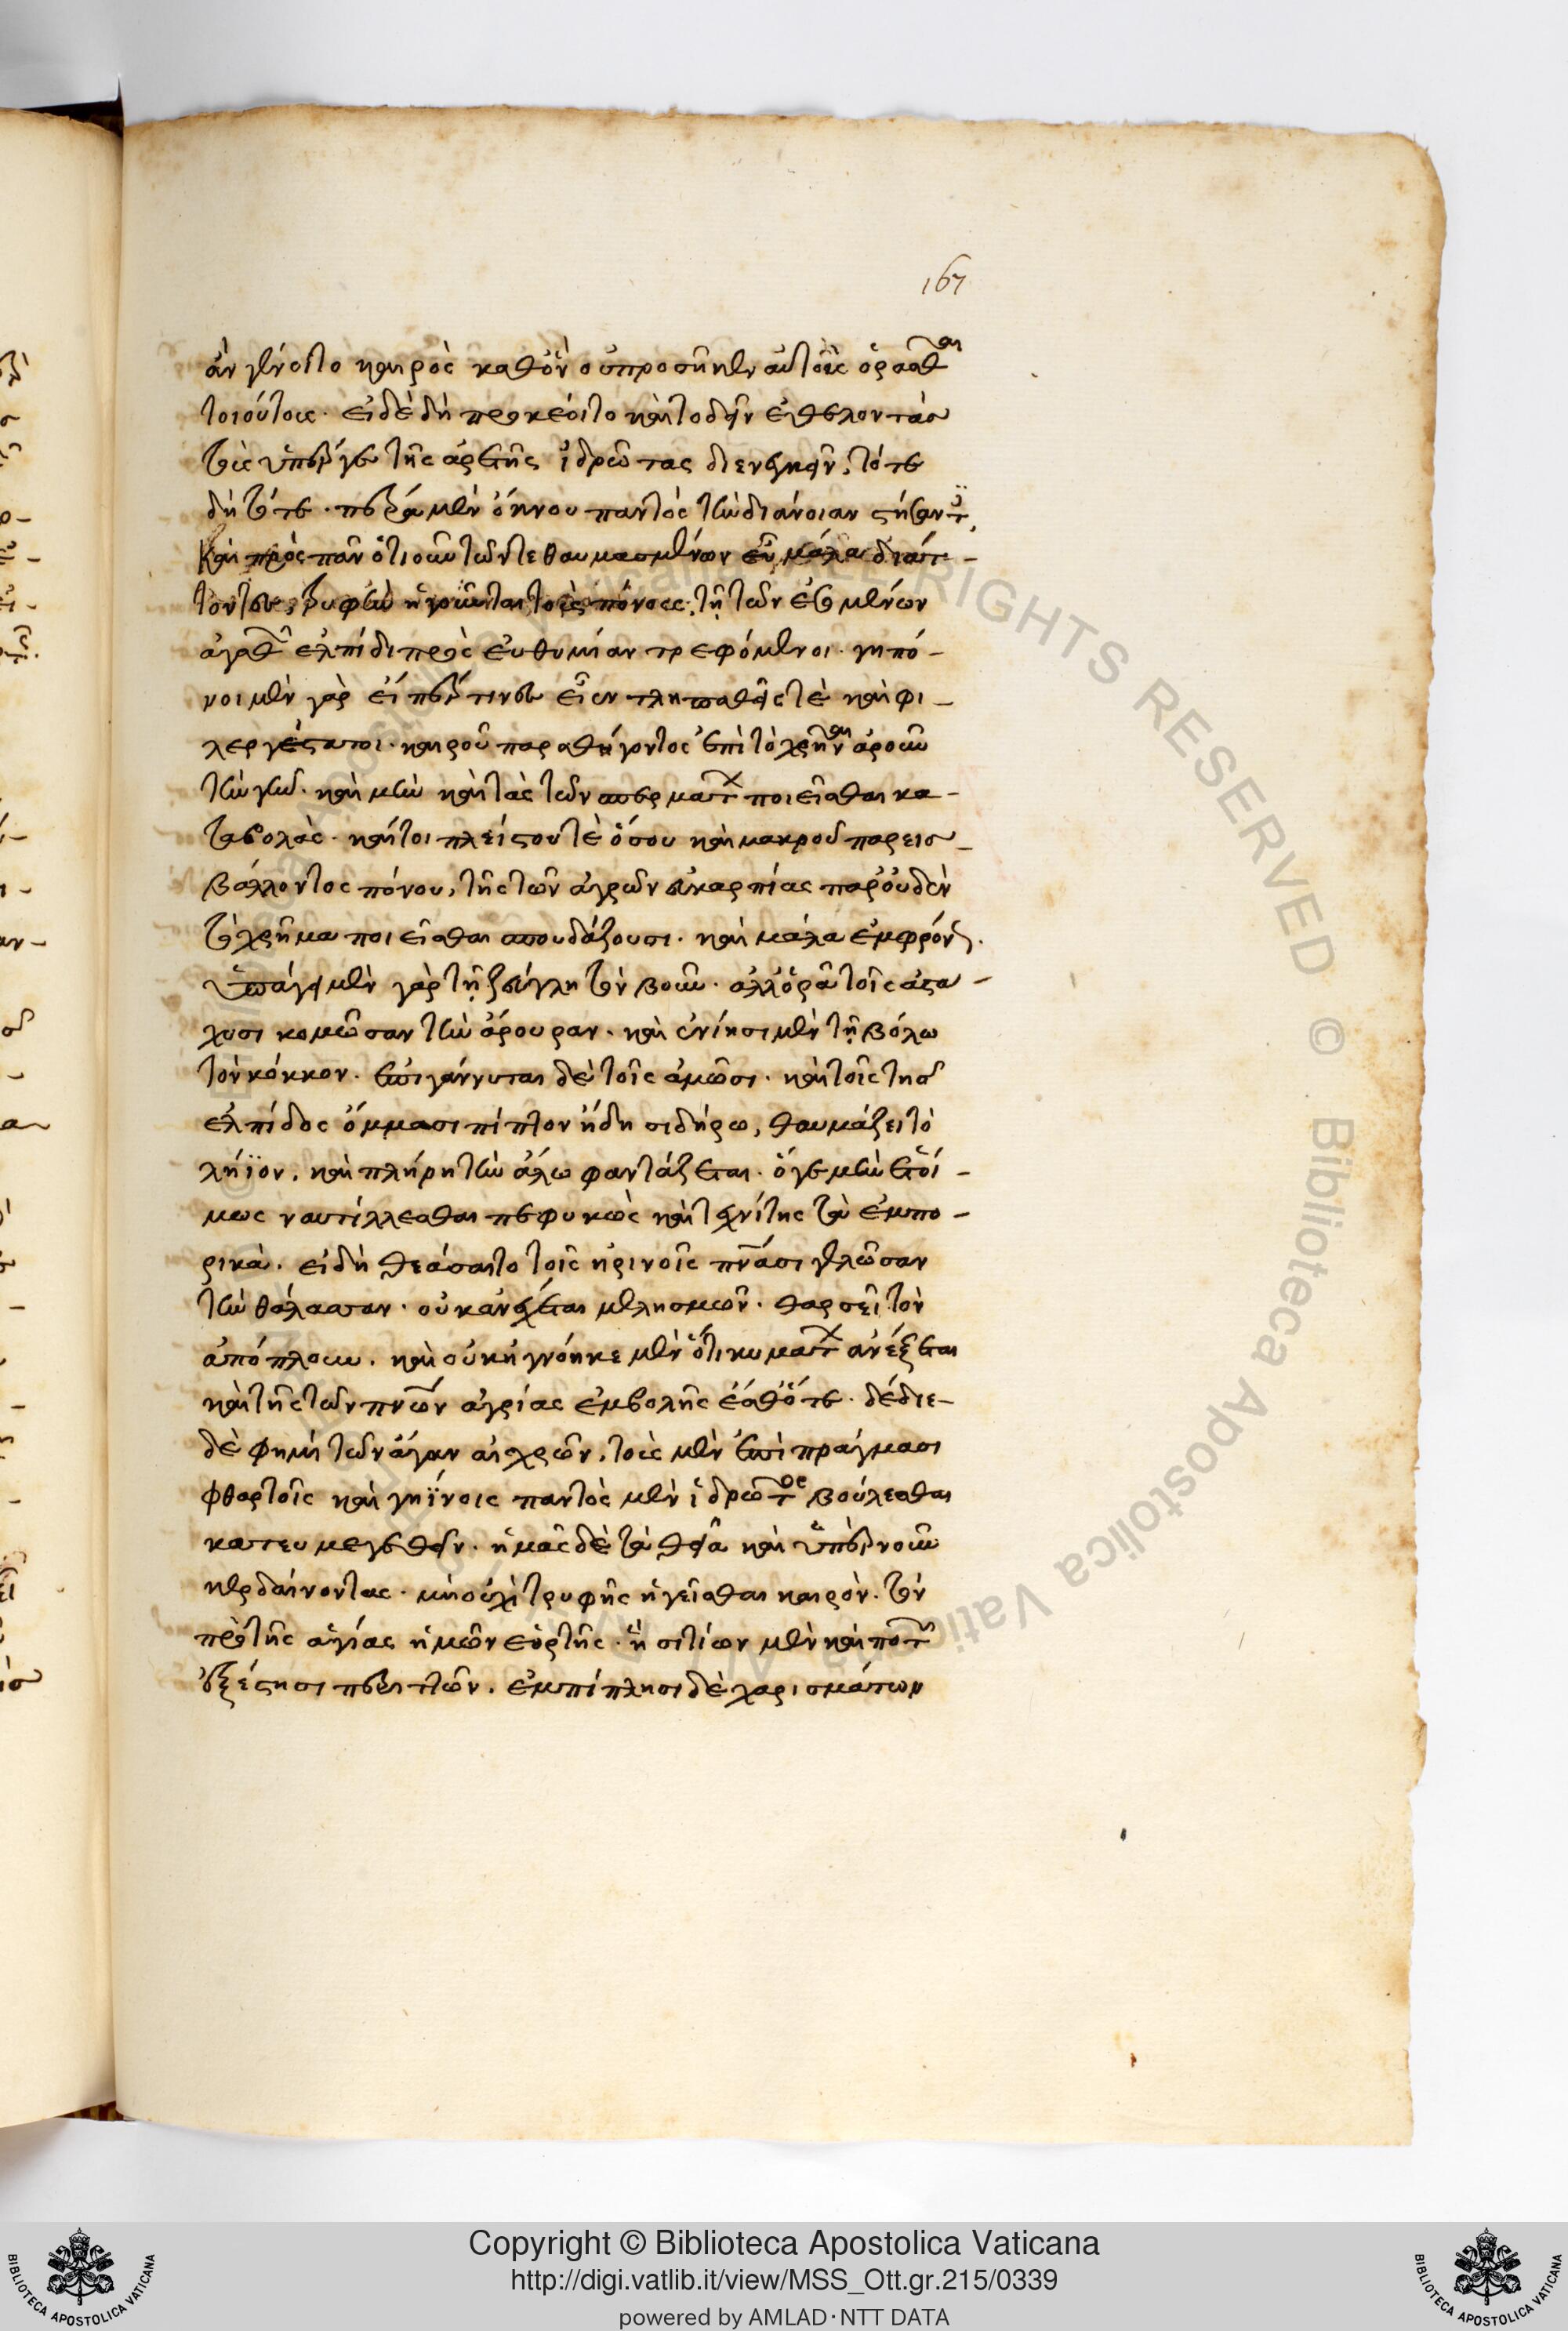 167
ἀν γένοιτο καιρὸς καθ' ὃν οὐ προσῆκεν αὐτοῖς ὁρᾶσθαι
τοιούτοις. εἰ δὲ δὴ προκέοιτο καὶ τὸ δεῖν ἐθέλοντας
τοὺς ὑπέρ γε τῆς ἀρετῆς ἱδρῶτας διενεγκεῖν, τότε
δὴ τότε. πέρα μὲν ὄκνου παντὸς τὴν διάνοιαν στήσαντες,
καὶ πρὸς πᾶν ὁτιοῦν τῶν τεθαυμασμένων εὖ μάλα διάτ-
τοντες, τρυφὴν ἡγοῦνται τοὺς πόνους, τῇ τῶν
ἀγαθῶν ἐλπίδι πρὸς εὐθυμίαν τρεφόμενοι. γηπό-
νοι μὲν γὰρ εἴπερ τινες εἶεν τλησιπαθεῖς τὲ καὶ φι-
λεργέστατοι. καιροῦ παραθήγοντος ἐπὶ τὸ χρῆναι ἀροῦν
τὴν γῆν. καὶ μὴν καὶ τὰς τῶν σπερμάτων ποιεῖσθαι κα-
ταβολάς. καίτοι πλείστου τὲ ὅσου καὶ μακροῦ παρεισ-
βάλλοντος πόνου, τῆς τῶν ἀγρῶν εὐκαρπίας παρ' οὐδὲν
τὸ χρῆμα ποιεῖσθαι σπουδάζουσι. καὶ μάλα ἐμφρόνως.
ὑπάγει μὲν γὰρ τῇ ζεύγλῃ τὸν βοῦν. ἀλλ' ὁρᾷ τοῖς ἀστά-
χυσι κομῶσαν τὴν ἄρουραν. καὶ ἐνίησι μὲν τῇ βόλω
τὸν κόκκον. ἐπιγάννυται δὲ τοῖς ἀμῶσι. καὶ τοῖς τῆς
ἐλπίδος ὄμμασι πίπτον ἤδη σιδήρω, θαυμάζει τὸ
λήϊον. καὶ πλήρη τὴν ἅλω φαντάζεται. ὅ γε μὴν ἑτοί-
μως ναυτίλλεσθαι πεφυκὼς καὶ τεχνίτης τὰ ἐμπο-
ρικὰ. εἰ δὴ θεάσαιτο τοῖς ἠρινοῖς πνεύμασι γελῶσαν
τὴν θάλασσαν. οὐκ ἀνέχεται μελλησμῶν. θαρσεῖ τὸν
ἀπόπλουν. καὶ οὐκ ἠγνόηκε μὲν ὅτι κυμάτων ἀνέξεται
καὶ τῆς τῶν πνευμάτων ἀγρίας ἐμβολῆς ἔσθ' ὅτε. δέδιε-
δὲ φημὶ τῶν ἄγαν αἰσχρῶν, τοὺς μὲν ἐπὶ πράγμασι
φθαρτοῖς καὶ γηΐνοις παντὸς μὲν ἱδρῶτος βούλεσθαι
κατευμεγεθεῖν. ἡμᾶς δὲ τὰ θεῖα καὶ ὑπὲρ νοῦν
κερδαίνοντας. μὴ οὐχὶ τρυφῆς ἡγεῖσθαι καιρὸν. τὸν
πρὸ τῆς ἁγίας ἡμῶν ἑορτῆς. ἣ σιτίων μὲν καὶ ποτῶν
ἐξίστησι περιττῶν. ἐμπίπλησι δὲ χαρισμάτων
Copyright © Biblioteca Apostolica Vaticana
http://digi.vatlib.it/view/MSS_Ott.gr.215/0339
powered by AMLAD·NTT DATA